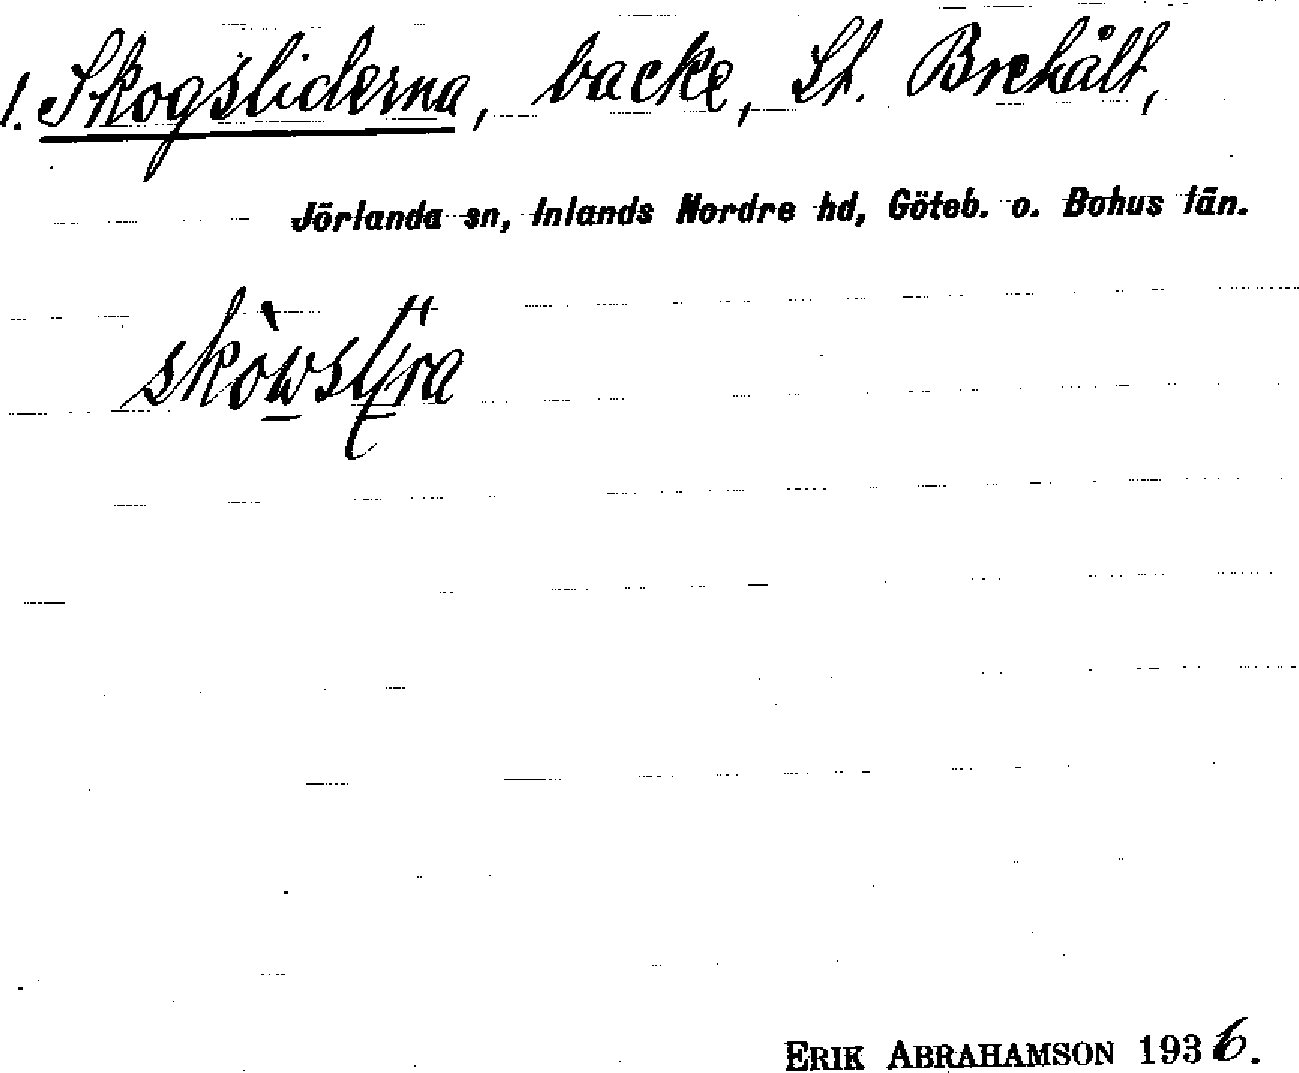 1. Skogsliderna, backe, St. Brehålt,
Jörlanda sn, Inlands Nordre hd, Göteb. o. Bohus län.
ERIK ABRAHAMSON 1936.